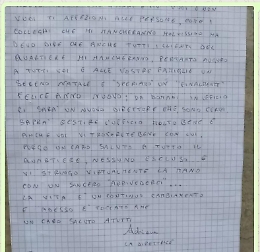 VUOI TI AFFEZIONI ALLE PERSONE, OLTRE I
COLLEGHI CHE MI MANCHERANNO MOLTISSIMO MA
DEVO DIRE CHE ANCHE TUTTI I CLIENTI DEL
QUARTIERE MI MANCHERANNO, PERTANTO AUGURO
A TUTTI VOI E ALLE VOSTRE FAMIGLIE UN
SERENO NATALE E SPERIAMO UN "FINALMENTE"
FELICE ANNO NUOVO! DA DOMANI IN UFFICIO
CI SARÀ UN NUOVO DIRETTORE CHE, SONO CERTA
SAPRÀ GESTIRE L'UFFICIO MOLTO BENE E
ANCHE VOI VI TROVERETE BENE CON LUI,
PORGO UN CARO SALUTO A TUTTO IL
QUARTIERE, NESSUNO ESCLUSO E
VI STRINGO VIRTUALMENTE LA MANO
CON UN SINCERO "ARRIVEDERCI"...
LA VITA È UN CONTINUO CAMBIAMENTO
E ADESSO È
UN CARO SALUTO A TUTTI
LA DIRETTRICE